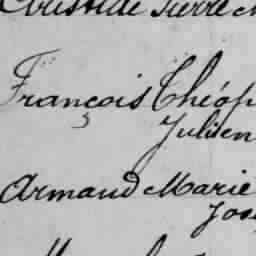 Pierre
François Théop
Julien
Armand Marie
Jos